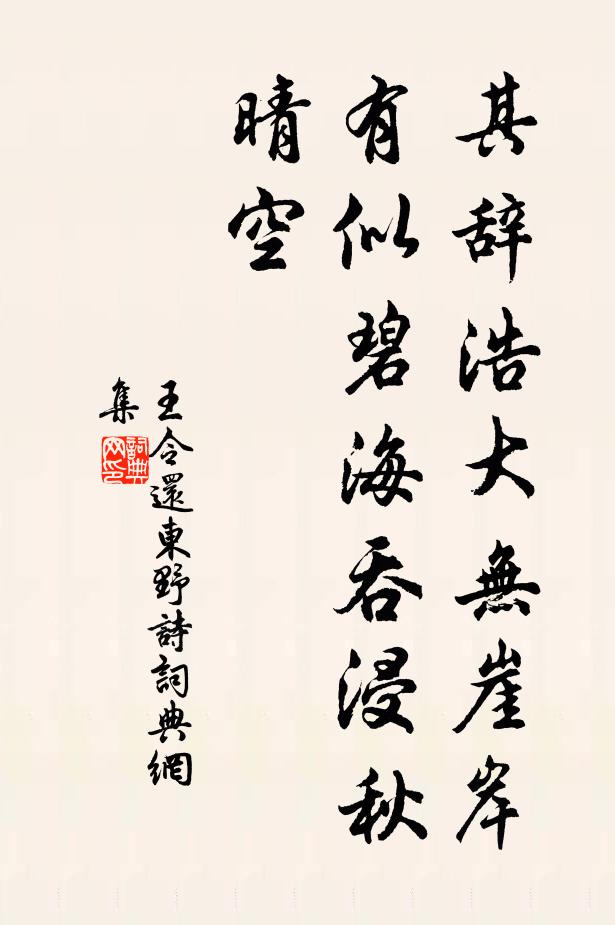 其辞浩大無崖岸
有似碧海吞浸秋
晴空
王令還東野詩詞典網
集
詞典網印